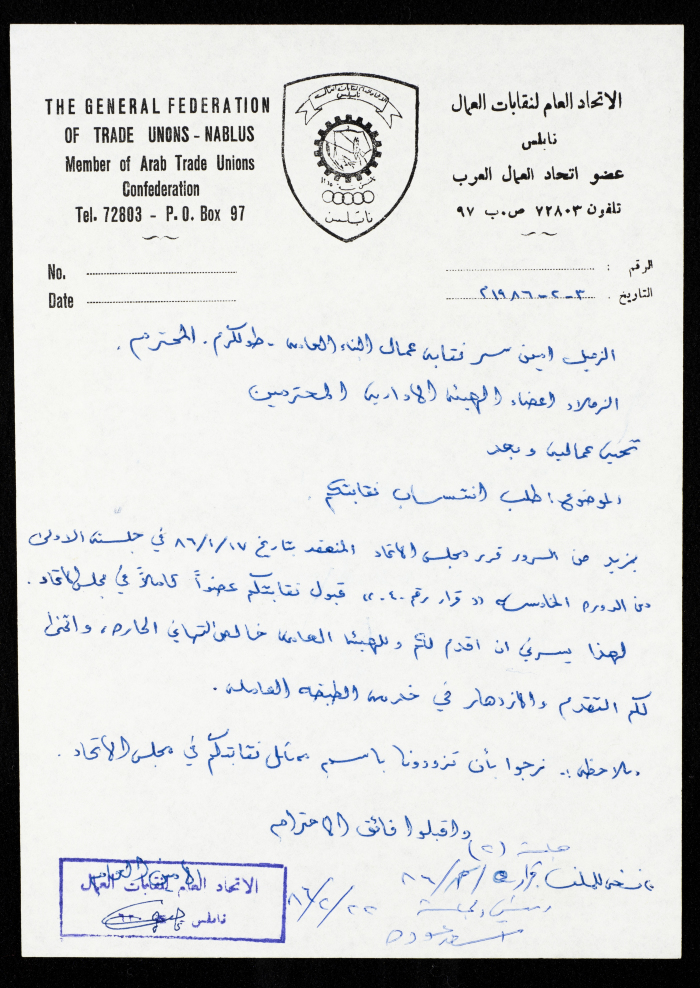 THE GENERAL FEDERATION
OF TRADE UNONS - NABLUS
Member of Arab Trade Unions
Confederation
Tel. 72803 - P.O. Box 97
الاتحاد العام لنقابات العمال
نابلس
عضو اتحاد العمال العرب
تلفون ٧٢٨٠٣ ص.ب ٩٧
نابلس
No.
Date
الرقم :
التاريخ . ٣-٢-١٩٨٦م
الزميل امين سر نقابة عمال البناء العامة - طولكرم. المحترم.
الزملاء اعضاء الهيئة الادارية المحترمين
تحية عمالية وبعد
الموضوع: طلب انتساب نقابتكم
بمزيد من السرور قرر مجلس الاتحاد المنعقد بتاريخ ٨٦/١/١٧ في جلسته الاولى
من الدورة الخامسة "قرار رقم ٤٠" قبول نقابتكم عضواً كاملاً في مجلس الاتحاد.
لهذا يسرني ان اقدم لكم وللهيئة العامة خالص التهاني الحارة، واتمنى
لكم التقدم والازدهار في خدمة الطبقة العاملة.
ملاحظة:. نرجوا بأن تزودونا باسم ممثل نقابتكم في مجلس الاتحاد.
واقبلوا فائق الاحترام
جلسة (٢)
الأمين العام
الاتحاد العام لنقابات العمال
نابلس
٨٦/٢/٢٢